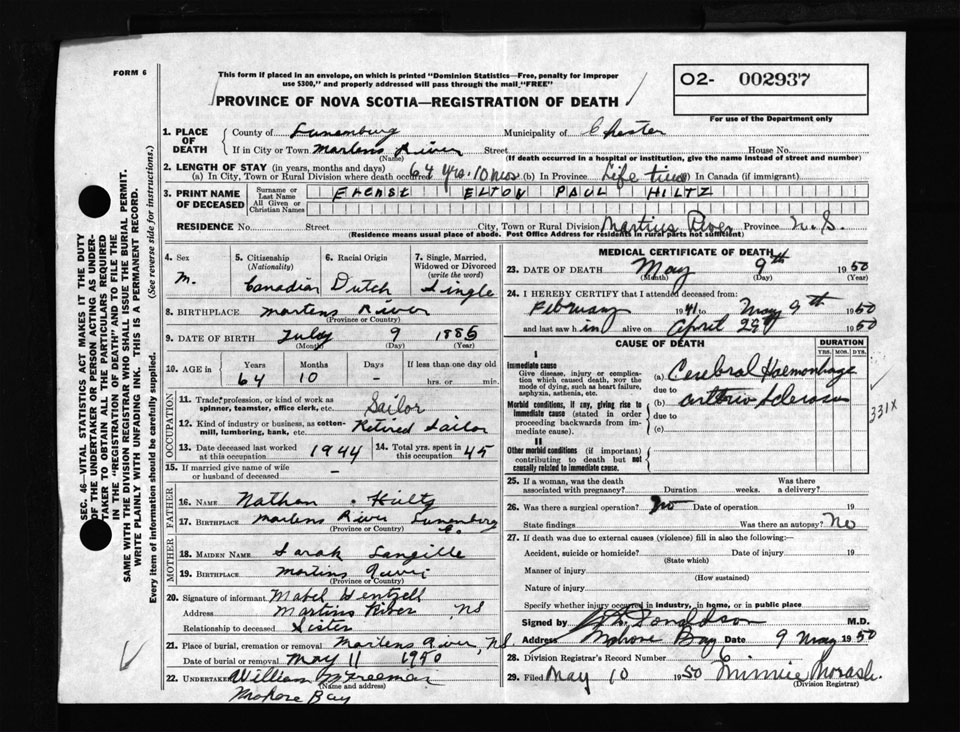 FORM 6
This form if placed in an envelope, on which is printed "Dominion Statistics—Free, penalty for improper
use $300," and properly addressed will pass through the mail "FREE"
PROVINCE OF NOVA SCOTIA—REGISTRATION OF DEATH
O2- 002937
For use of the Department only
SEC. 46—VITAL STATISTICS ACT MAKES IT THE DUTY
OF THE UNDERTAKER OR PERSON ACTING AS UNDER-
TAKER TO OBTAIN ALL THE PARTICULARS REQUIRED
IN THE "REGISTRATION OF DEATH" AND TO FILE THE
SAME WITH THE DIVISION REGISTRAR WHO SHALL ISSUE THE BURIAL PERMIT.
WRITE PLAINLY WITH UNFADING INK. THIS IS A PERMANENT RECORD.
Every item of information should be carefully supplied. (See reverse side for instructions.)
1. PLACE OF DEATH County of Lunenburg Municipality of Chester
If in City or Town Martens River Street House No.
(Name) (If death occurred in a hospital or institution, give the name instead of street and number)
2. LENGTH OF STAY (in years, months and days)
(a) In City, Town or Rural Division where death occurred 64 yrs. 10 mos (b) In Province Life time (c) In Canada (if immigrant)
3. PRINT NAME OF DECEASED Surname or Last Name
All Given or Christian Names
ERENST ELTON PAUL HILTZ
RESIDENCE No. Street City, Town or Rural Division Martins River Province N.S.
(Residence means usual place of abode. Post Office Address for residents in rural parts not sufficient)
4. Sex M.
5. Citizenship (Nationality) Canadian
6. Racial Origin Dutch
7. Single, Married, Widowed or Divorced (write the word) Single
8. BIRTHPLACE Martens River
(Province or Country)
9. DATE OF BIRTH July 9 1885
(Month) (Day) (Year)
10. AGE in Years Months Days If less than one day old
64 10 - hrs. or min.
OCCUPATION
11. Trade, profession, or kind of work as spinner, teamster, office clerk, etc. Sailor
12. Kind of industry or business, as cotton-mill, lumbering, bank, etc. Retired Sailor
13. Date deceased last worked at this occupation 1944 14. Total yrs. spent in this occupation 45
15. If married give name of wife or husband of deceased -
FATHER
16. NAME Nathan Hiltz
17. BIRTHPLACE Martens River Lunenburg
(Province or Country)
MOTHER
18. MAIDEN NAME Sarah Langille
19. BIRTHPLACE Martins River
(Province or Country)
20. Signature of informant Mabel Wentzell
Address Martins River NS
Relationship to deceased Sister
21. Place of burial, cremation or removal Martens River, NS.
Date of burial or removal May 11 1950
22. UNDERTAKER William Freeman
(Name and address)
Mahone Bay
MEDICAL CERTIFICATE OF DEATH
23. DATE OF DEATH May 9th 1950
(Month) (Day)
24. I HEREBY CERTIFY that I attended deceased from:
February 1941 to May 9th 1950
and last saw him alive on April 29 1950
CAUSE OF DEATH DURATION
YRS. MOS. DYS.
I
Immediate cause
Give disease, injury or complication which caused death, not the mode of dying, such as heart failure, asphyxia, asthenia, etc.
(a) Cerebral Haemorrhage
due to
Morbid conditions, if any, giving rise to immediate cause (stated in order proceeding backwards from immediate cause).
(b) arterio Sclerosis
due to
(c)
331X
II
Other morbid conditions (if important) contributing to death but not causally related to immediate cause.
25. If a woman, was the death associated with pregnancy? Duration weeks. Was there a delivery?
26. Was there a surgical operation? No Date of operation 19
State findings Was there an autopsy? No
27. If death was due to external causes (violence) fill in also the following:—
Accident, suicide or homicide? Date of injury 19
(State which)
Manner of injury
(How sustained)
Nature of injury
Specify whether injury occurred in industry, in home, or in public place
Signed by Donaldson M.D.
Address Mahone Bay Date 9 May 1950
28. Division Registrar's Record Number
29. Filed May 10 1950 Minnie Morash
(Division Registrar)